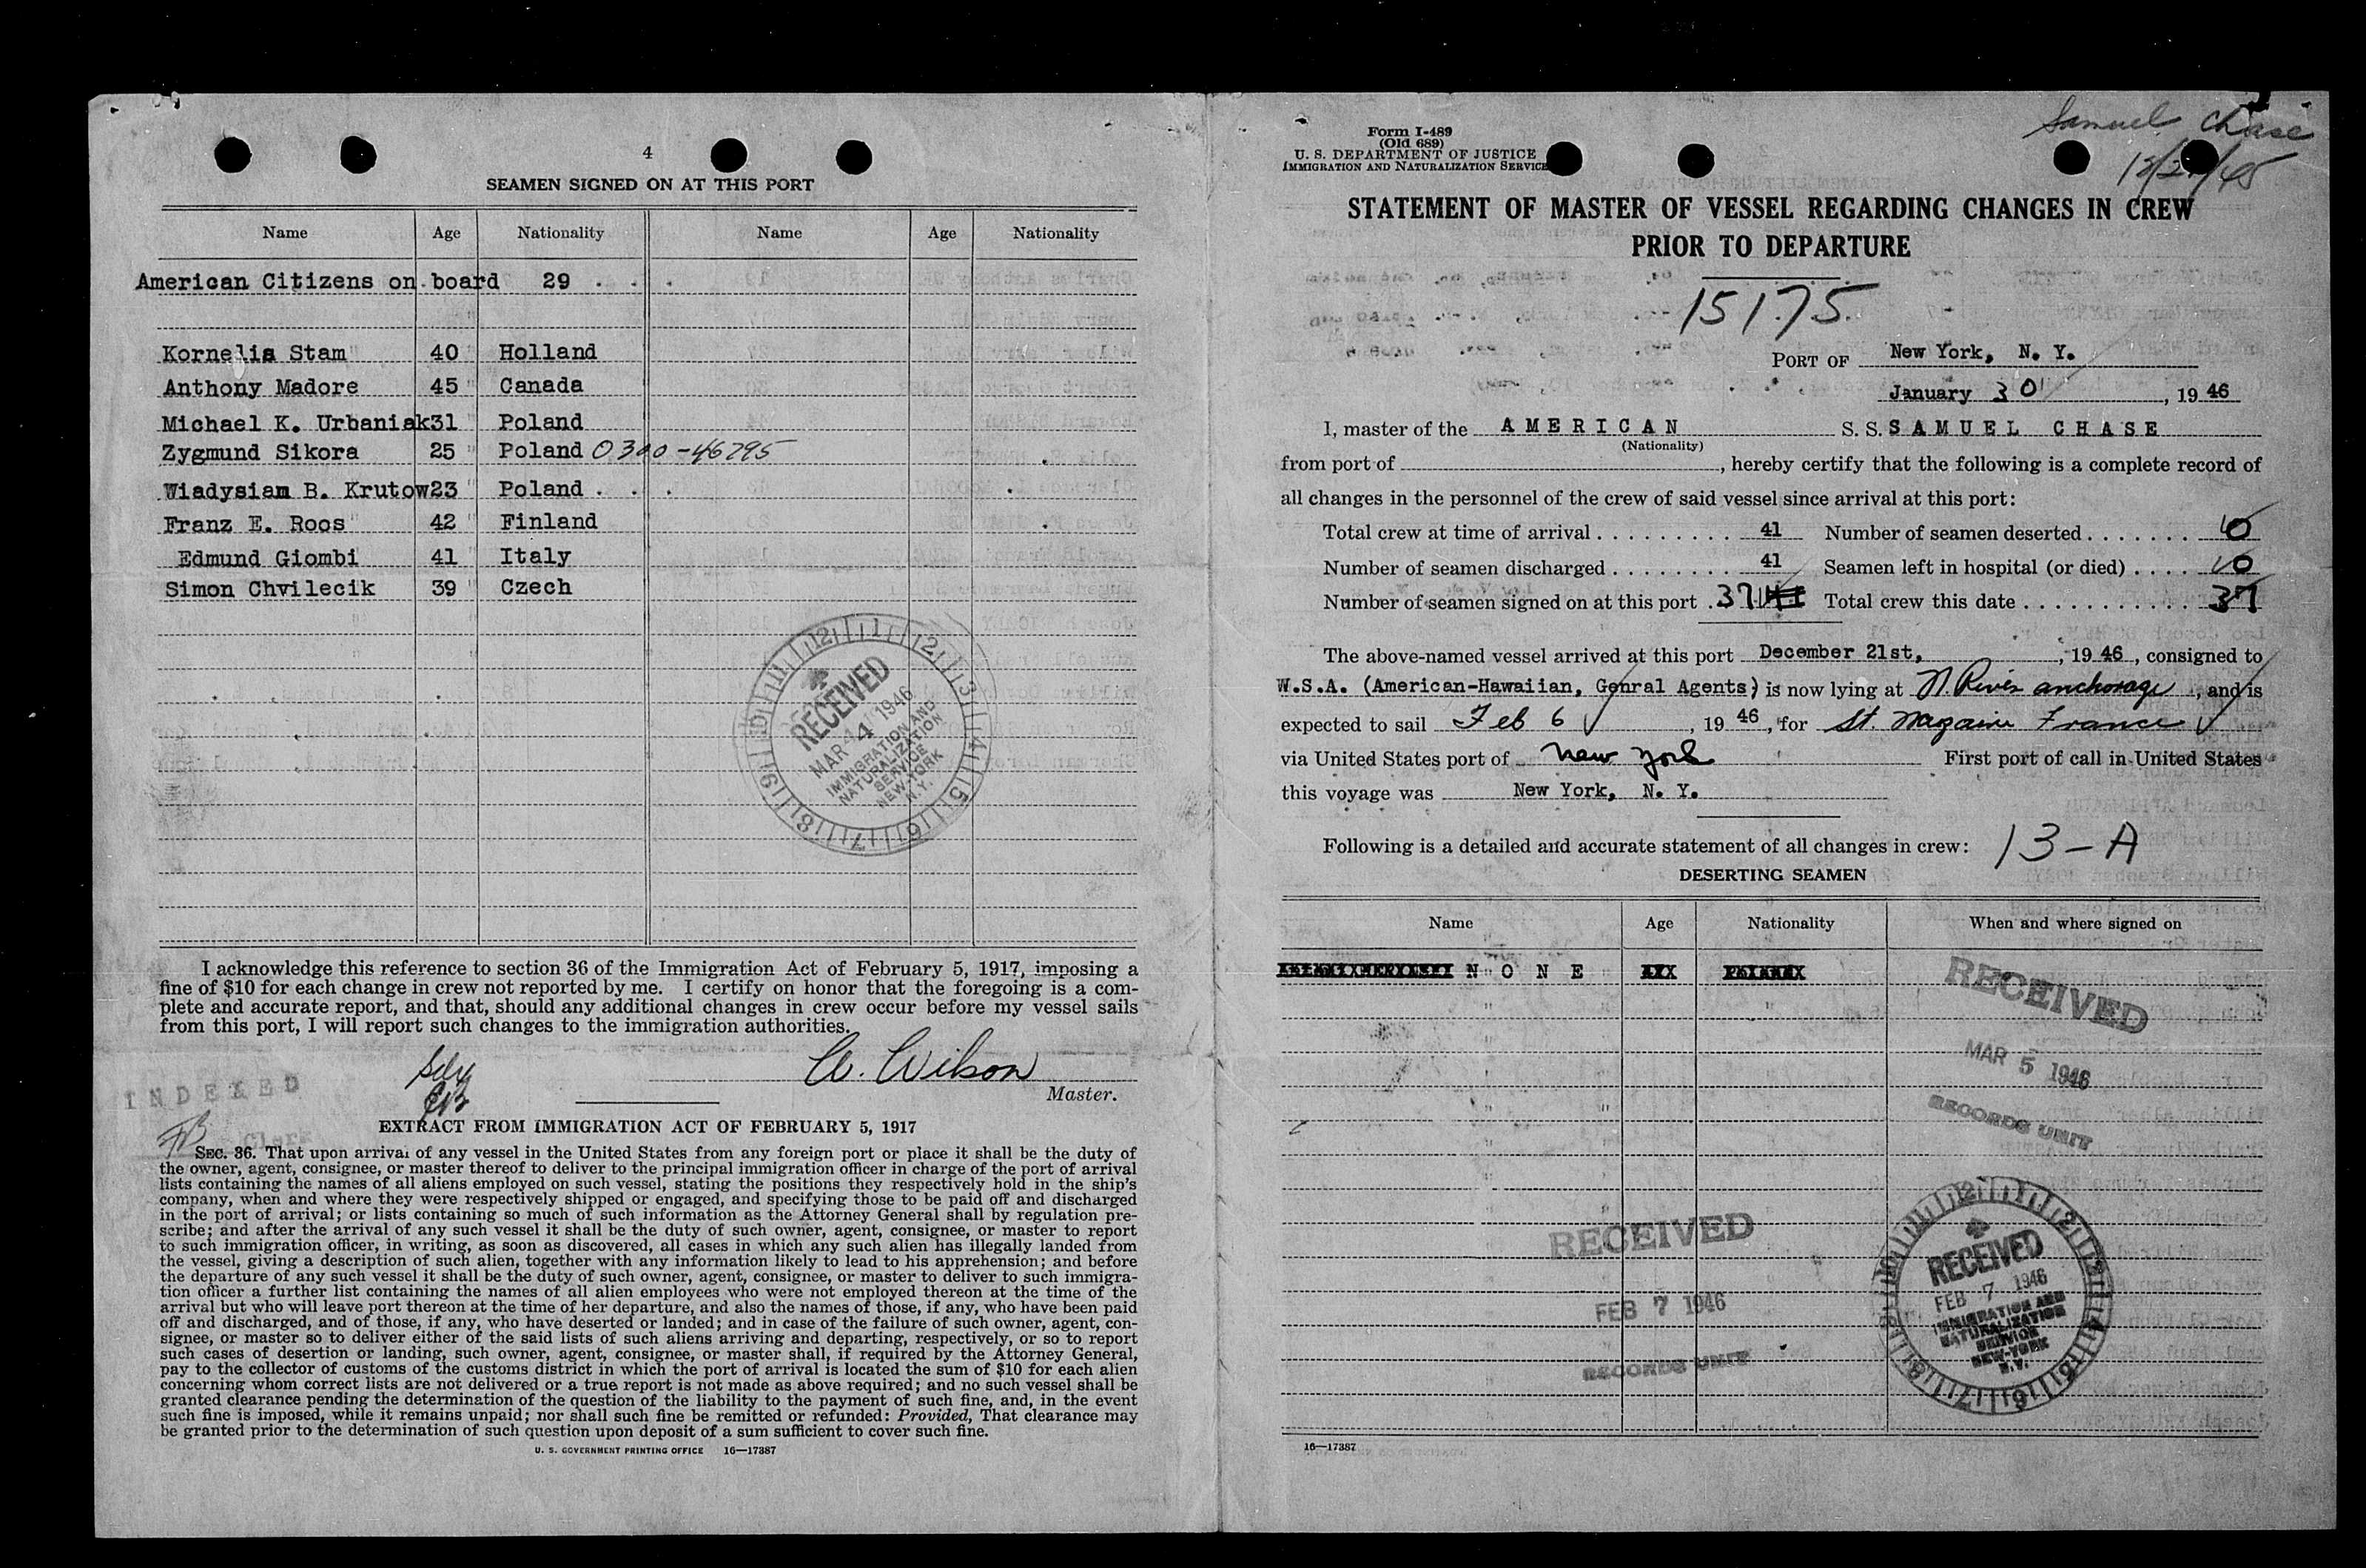 4
SEAMEN SIGNED ON AT THIS PORT
Name Age Nationality Name Age Nationality
American Citizens on board 29 . . .
Kornelis Stam 40 Holland
Anthony Madore 45 Canada
Michael K. Urbaniak 31 Poland
Zygmund Sikora 25 Poland 0300-46795
Wiadysian B. Krutow 23 Poland . . .
Franz E. Roos 42 Finland
Edmund Giombi 41 Italy
Simon Chvilecik 39 Czech
12 1 2 3 4 5 6 7 8 9 10 11
RECEIVED
MAR 4 1946
IMMIGRATION AND
NATURALIZATION
SERVICE
NEW-YORK
N.Y.
I acknowledge this reference to section 36 of the Immigration Act of February 5, 1917, imposing a
fine of $10 for each change in crew not reported by me. I certify on honor that the foregoing is a com-
plete and accurate report, and that, should any additional changes in crew occur before my vessel sails
from this port, I will report such changes to the immigration authorities.
W. Wilson
Master.
INDEXED
Clerk
EXTRACT FROM IMMIGRATION ACT OF FEBRUARY 5, 1917
SEC. 36. That upon arrival of any vessel in the United States from any foreign port or place it shall be the duty of
the owner, agent, consignee, or master thereof to deliver to the principal immigration officer in charge of the port of arrival
lists containing the names of all aliens employed on such vessel, stating the positions they respectively hold in the ship's
company, when and where they were respectively shipped or engaged, and specifying those to be paid off and discharged
in the port of arrival; or lists containing so much of such information as the Attorney General shall by regulation pre-
scribe; and after the arrival of any such vessel it shall be the duty of such owner, agent, consignee, or master to report
to such immigration officer, in writing, as soon as discovered, all cases in which any such alien has illegally landed from
the vessel, giving a description of such alien, together with any information likely to lead to his apprehension; and before
the departure of any such vessel it shall be the duty of such owner, agent, consignee, or master to deliver to such immigra-
tion officer a further list containing the names of all alien employees who were not employed thereon at the time of the
arrival but who will leave port thereon at the time of her departure, and also the names of those, if any, who have been paid
off and discharged, and of those, if any, who have deserted or landed; and in case of the failure of such owner, agent, con-
signee, or master so to deliver either of the said lists of such aliens arriving and departing, respectively, or so to report
such cases of desertion or landing, such owner, agent, consignee, or master shall, if required by the Attorney General,
pay to the collector of customs of the customs district in which the port of arrival is located the sum of $10 for each alien
concerning whom correct lists are not delivered or a true report is not made as above required; and no such vessel shall be
granted clearance pending the determination of the question of the liability to the payment of such fine, and, in the event
such fine is imposed, while it remains unpaid; nor shall such fine be remitted or refunded: Provided, That clearance may
be granted prior to the determination of such question upon deposit of a sum sufficient to cover such fine.
U. S. GOVERNMENT PRINTING OFFICE 16—17387
Samuel Chase
12/21/45
Form I-489
(Old 689)
U. S. DEPARTMENT OF JUSTICE
IMMIGRATION AND NATURALIZATION SERVICE
STATEMENT OF MASTER OF VESSEL REGARDING CHANGES IN CREW
PRIOR TO DEPARTURE
15175
PORT OF New York, N. Y.
January 30, 1946
I, master of the AMERICAN S. S. SAMUEL CHASE
(Nationality)
from port of , hereby certify that the following is a complete record of
all changes in the personnel of the crew of said vessel since arrival at this port:
Total crew at time of arrival . . . . . . . . . 41 Number of seamen deserted . . . . . . . 0
Number of seamen discharged . . . . . . . . 41 Seamen left in hospital (or died) . . . . 0
Number of seamen signed on at this port . 37 Total crew this date . . . . . . . . . . . . 37
The above-named vessel arrived at this port December 21st, , 1946, consigned to
W.S.A. (American-Hawaiian, Genral Agents) is now lying at N. River anchorage, and is
expected to sail Feb 6, 1946, for St. Nazaire France
via United States port of New York First port of call in United States
this voyage was New York, N. Y.
Following is a detailed and accurate statement of all changes in crew: 13-A
DESERTING SEAMEN
Name Age Nationality When and where signed on
NONE
RECEIVED
MAR 5 1946
RECORDS UNIT
RECEIVED
FEB 7 1946
RECORDS UNIT
12 1 2 3 4 5 6 7 8 9 10 11
RECEIVED
FEB 7 1946
IMMIGRATION AND
NATURALIZATION
SERVICE
NEW-YORK
N.Y.
16—17387